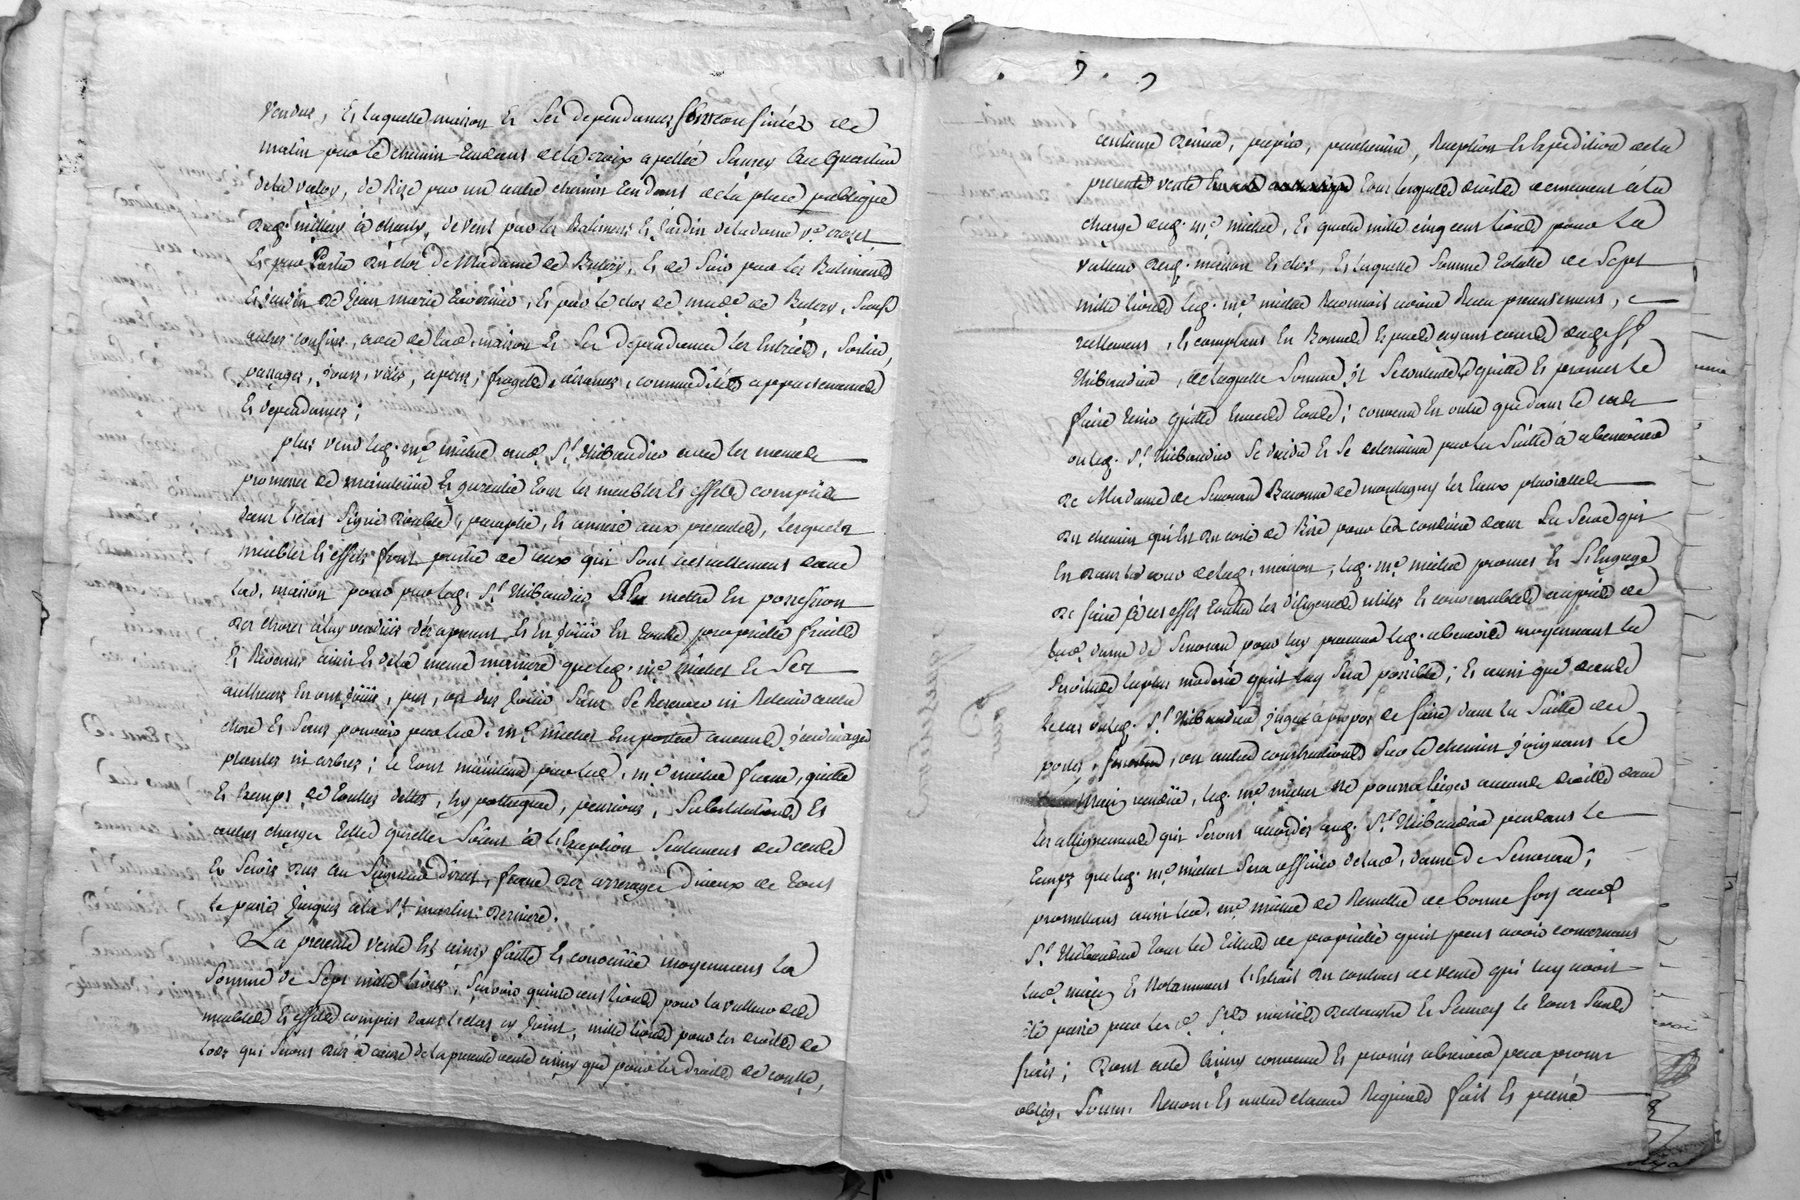 vendus, Et laquelle maison Et Ses dependances Sont confinées de
matin par le chemin tendant de la croix apellée Saurey au quartier
de la valoy, de Bise par un autre chemin tendant de la place publique
à charly, de vent par les Batiments Et Jardin de la dame v.e crozet
Et par Partie du clos de Madame de Bulery, Et de Soir par les Batiments
Et jardin de Jean marie Et par le clos de made de Bulery, Sauf
autres confins, avec de lad. maison Et Ses dependances les Entrées, Sorties,
passages, jours, vües, aisances, commodités appartenances
Et dependances;
plus vend led. m.e michel aud. S.r thibaudier avec les memes
promesses de maintenir Et garentie tous les meubles Et effets compris
dans l'etat Signé double, Et annexé aux presentes, lesquels
meubles Et effets font partie de ceux qui Sont actuellement dans
lad. maison pour par led. S.r thibaudier Se mettre En possession
des choses à luy vendües dès apresent Et En joüir En toute proprieté fruits
Et Revenus ainsi Et de la meme maniere que led. m.e michel Et Ses
autheurs En ont joüis, pu, ou dus joüir Sans Se Reserver ni Retenir aucune
chose Et Sans pouvoir par led. m.e michel Emporter aucuns jardinages
plantes ni arbres; le tout maintenu par led. m.e michel franc, quitte
Et Exempt de toutes dettes, hypotheques, pensions, Substitutions Et
autres charges telles qu'elles Soient à l'Exception Seulement des cens
Et Servis dus au Seigneur direct, francs des arrerages d'iceux de tout
le passé jusques à la S.t martin derniere.
La presente vente Est ainsy faitte Et convenüe moyennant la
Somme de Sept mille livres, Scavoir quinze cent livres pour la valleur des
meubles Et effets compris dans l'etat cy joint, mille livres pour les droits de
lods qui Seront dus à cause de la presente vente ainsy que pour les droits de contle,
centieme denier, papier, parchemin, Reception Et Expedition de la
presente vente tous lesquels droits demeurent à la
charge dud. m.e michel, Et quatre mille cinq cent livres pour la
valleur desd. maison Et clos, Et laquelle Somme totalle de Sept
mille livres led. m.e michel Reconnoit avoir Reçu presentement,
reellement, Et comptant En Bonnes Especes ayant cours dud. S.r
thibaudier, de laquelle Somme il Se contente quitte Et promet le
faire tenir quitte Envers tous; convenu En outre que dans le cas
où led. S.r thibaudier Se decide Et Se determine par la Suitte à abeneviser
de Madame de Senozan Baronne de montagny les Eaux pluvialles
du chemin qui Est du coté de Bise pour les conduire dans La Serve qui
Est dans la cour de lad. maison, led. m.e michel promet Et S'Engage
de faire à cet effet toutes les diligences utiles Et convenables auprès de
lad. dame de Senozan pour luy procurer led. abenevis moyennant la
Servitude la plus moderée qu'il luy Sera possible; Et ainsi que dans
le cas où led. S.r thibaudier jugea à propos de faire dans la Suitte des
portes, fenetres, ou autres constructions Sur le chemin joignant le
vendüe, led. m.e michel ne pourra Exiger aucuns droits dans
les allignements qui Seront accordés aud. S.r thibaudier pendant le
temps que led. m.e michel Sera officier de lad. dame de Senozan;
promettant aussi led. m.e michel de Remettre de bonne foy aud.
S.r thibaudier tous les titres de proprieté qu'il peut avoir concernant
Et Notamment l'Extrait du contract de vente qui luy avoit
été passé par les Et Saurey le tout Sans
frais; Dont acte Ainsy convenu Et promis observer par promesse
oblig. Soum. Renon. Et autres clauses Requises fait Et passé